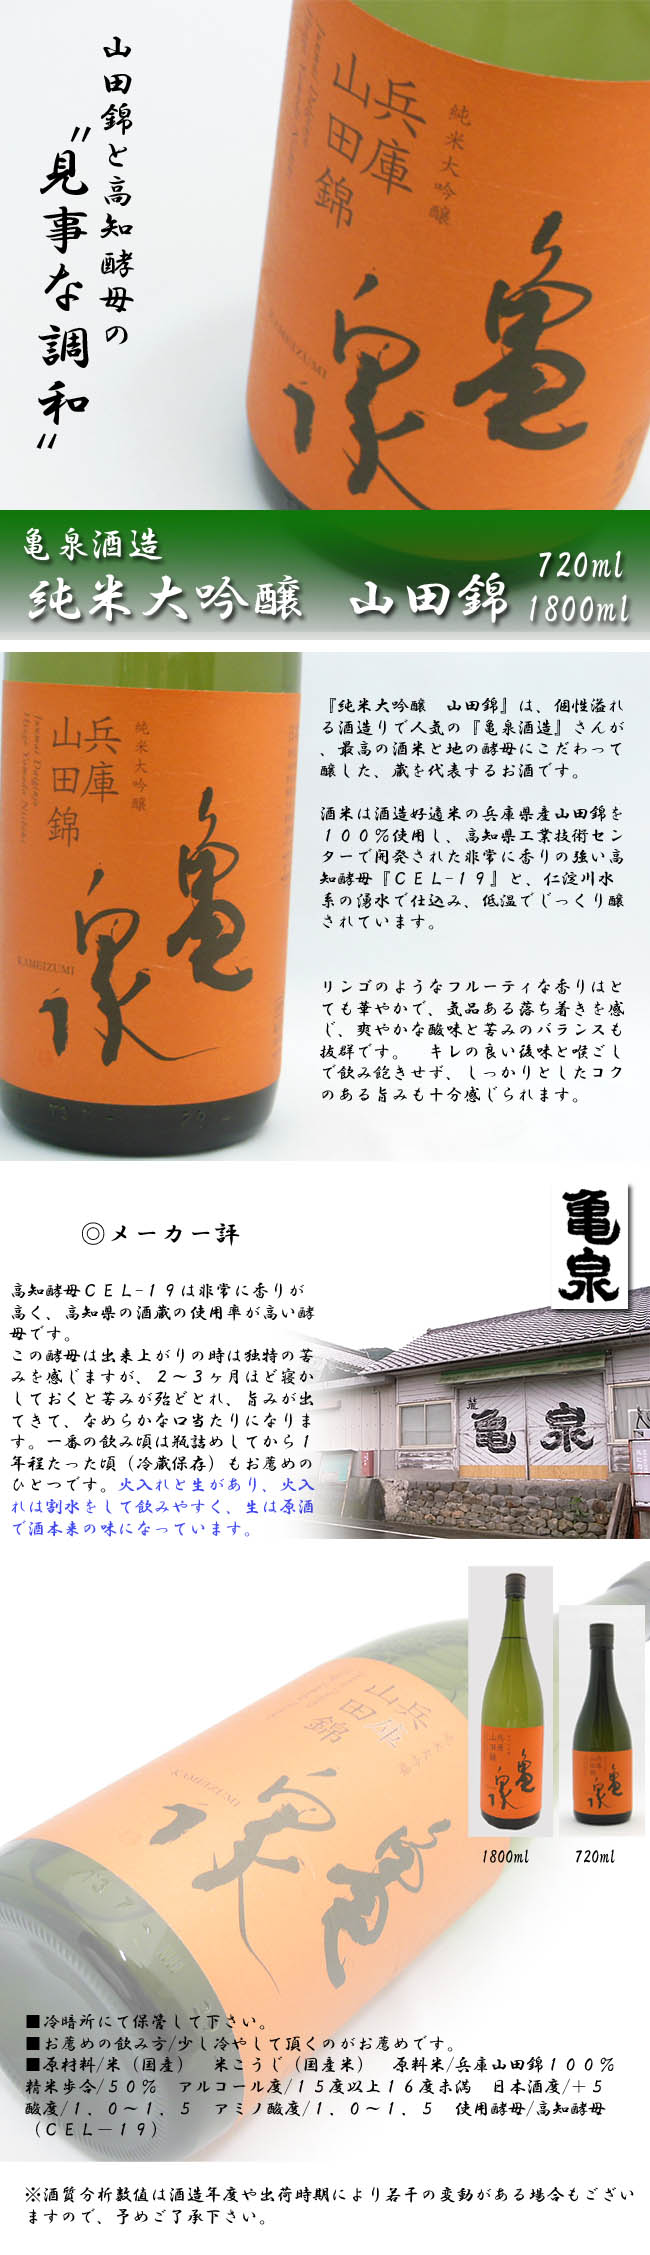 山田錦と高知酵母の
"見事な調和"
純米大吟醸
兵庫
山田錦
亀
泉
KAMEIZUMI
亀泉酒造
純米大吟醸　山田錦
720ml
1800ml
純米大吟醸
兵庫
山田錦
亀
泉
KAMEIZUMI
『純米大吟醸　山田錦』は、個性溢れ
る酒造りで人気の『亀泉酒造』さんが
、最高の酒米と地の酵母にこだわって
醸した、蔵を代表するお酒です。
酒米は酒造好適米の兵庫県産山田錦を
１００％使用し、高知県工業技術セン
ターで開発された非常に香りの強い高
知酵母『ＣＥＬ-１９』と、仁淀川水
系の湧水で仕込み、低温でじっくり醸
されています。
リンゴのようなフルーティな香りはと
ても華やかで、気品ある落ち着きを感
じ、爽やかな酸味と苦みのバランスも
抜群です。　キレの良い後味と喉ごし
で飲み飽きせず、しっかりとしたコク
のある旨みも十分感じられます。
◎メーカー評
亀泉
高知酵母ＣＥＬ-１９は非常に香りが
高く、高知県の酒蔵の使用率が高い酵
母です。
この酵母は出来上がりの時は独特の苦
みを感じますが、２～３ヶ月ほど寝か
しておくと苦みが殆どとれ、旨みが出
てきて、なめらかな口当たりになりま
す。一番の飲み頃は瓶詰めしてから１
年程たった頃（冷蔵保存）もお薦めの
ひとつです。火入れと生があり、火入
れは割水をして飲みやすく、生は原酒
で酒本来の味になっています。
亀泉
兵庫
山田錦
KAMEIZUMI
亀
泉
1800ml
720ml
■冷暗所にて保管して下さい。
■お薦めの飲み方/少し冷やして頂くのがお薦めです。
■原材料/米（国産）　米こうじ（国産米）　原料米/兵庫山田錦１００％
精米歩合/５０％　アルコール度/１５度以上１６度未満　日本酒度/＋５
酸度/１．０～１．５　アミノ酸度/１．０～１．５　使用酵母/高知酵母
（ＣＥＬ－１９）
※酒質分析数値は酒造年度や出荷時期により若干の変動がある場合もござい
ますので、予めご了承下さい。